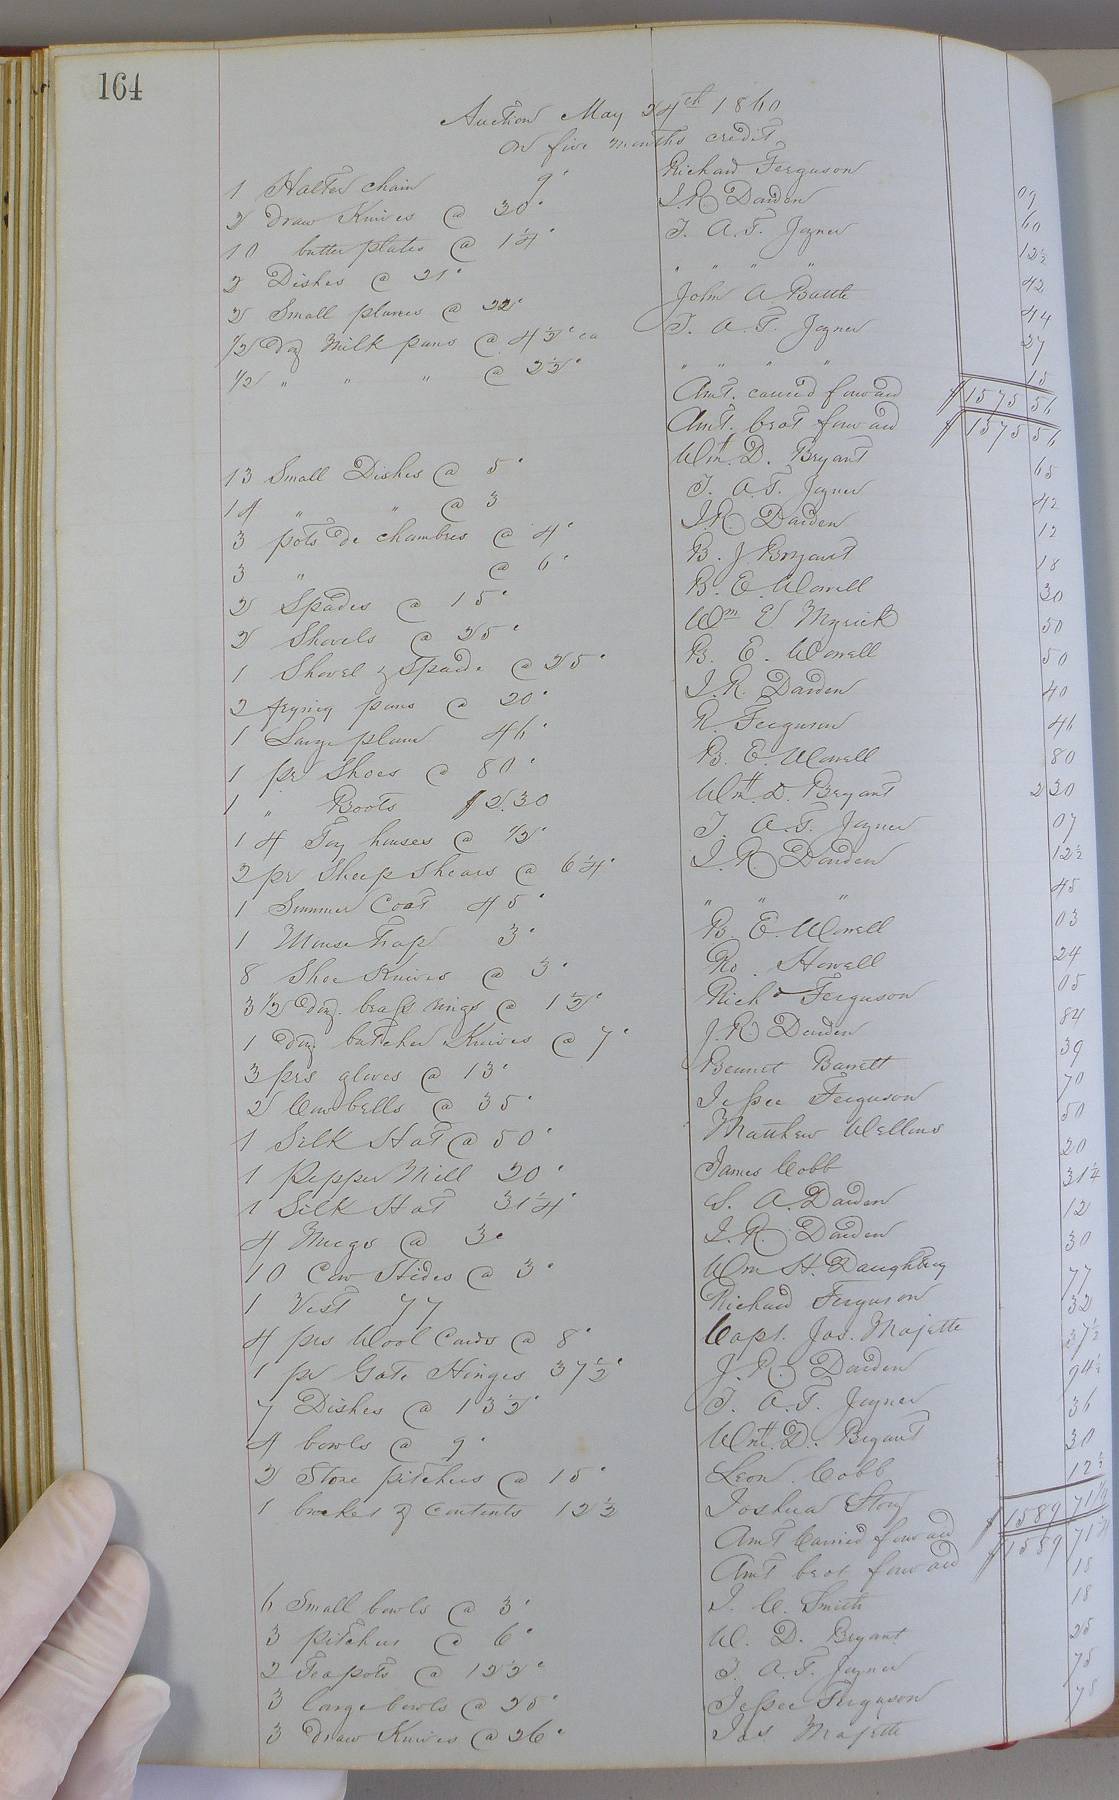 164
Auction May 24th 1860
on five months credit
1 Halter chain 9" Richard Ferguson 09
2 draw Knives @ 30" J. R. Darden 60
10 butter plates @ 1¼" T. A. F. Joyner 12½
2 Dishes @ 21" " " " " 42
2 Small planes @ 22" John A Battle 44
1/2 doz Milk pans @ 4½" ea T. A. F. Joyner 27
1/2 " " " @ 2½" " " " " 15
Amt. carried forward $1575 56
Amt. brot forward $1575 56
13 Small Dishes @ 5" Wm. D. Bryant 65
14 " " @ 3 T. A. F. Joyner 42
3 pots de chambres @ 4" J. R. Darden 12
3 " @ 6" B. J. Bryant 18
2 Spades @ 15" B. E. Worrell 30
2 Shovels @ 25" Wm E Myrick 50
1 Shovel & Spade @ 25" B. E. Worrell 50
2 frying pans @ 20" J. R. Darden 40
1 Large plane 46" R. Ferguson 46
1 pr Shoes @ 80" B. E. Worrell 80
1 " Boots $2.30 Wm. D. Bryant 2 30
14 Fog houses @ ½" T. A. F. Joyner 07
2 pr Sheep Shears @ 6¼" J. R. Darden 12½
1 Summer Coat 45" " " " 45
1 Mouse trap 3" B. E. Worrell 03
8 Shoe Knives @ 3" Ro. Howell 24
3 1/2 doz. brass rings @ 1½" Richd Ferguson 05
1 doz. butcher Knives @ 7" J. R. Darden 84
3 prs gloves @ 13" Bennet Barrett 39
2 Cowbells @ 35" Jesse Ferguson 70
1 Silk Hat @ 50" Matthew Wellons 50
1 Pepper Mill 20" James Cobb 20
1 Silk Hat 31¼" S. A. Darden 31¼
4 Mugs @ 3" J. R. Darden 12
10 Cow Hides @ 3" Wm H. Daughtrey 30
1 Vest 77 Richard Ferguson 77
4 prs Wool Cards @ 8" Capt. Jas. Majette 32
1 pr Gate Hinges 37½" J. R. Darden 37½
7 Dishes @ 13½" T. A. F. Joyner 94½
4 bowls @ 9" Wm. D. Bryant 36
2 Stone pitchers @ 15" Leon. Cobb 30
1 basket & contents 12½ Joshua Story 12½
Amt Carried forward $1589 71¼
Amt brot forward $1589 71¼
6 Small bowls @ 3" J. C. Smith 18
3 pitchers @ 6" W. D. Bryant 18
2 Teapots @ 12½" T. A. F. Joyner 25
3 large bowls @ 25" Jesse Ferguson 75
3 draw Knives @ 26" Jas Majette 78